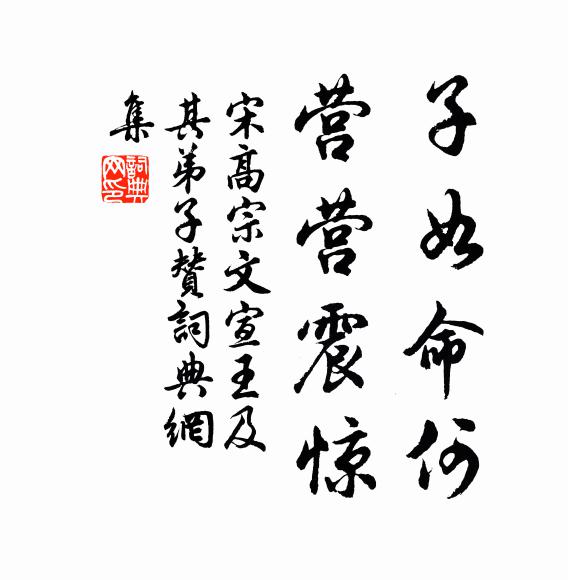 子如命何
营营震惊
宋高宗文宣王及
其弟子赞詞典網
集
詞典网印